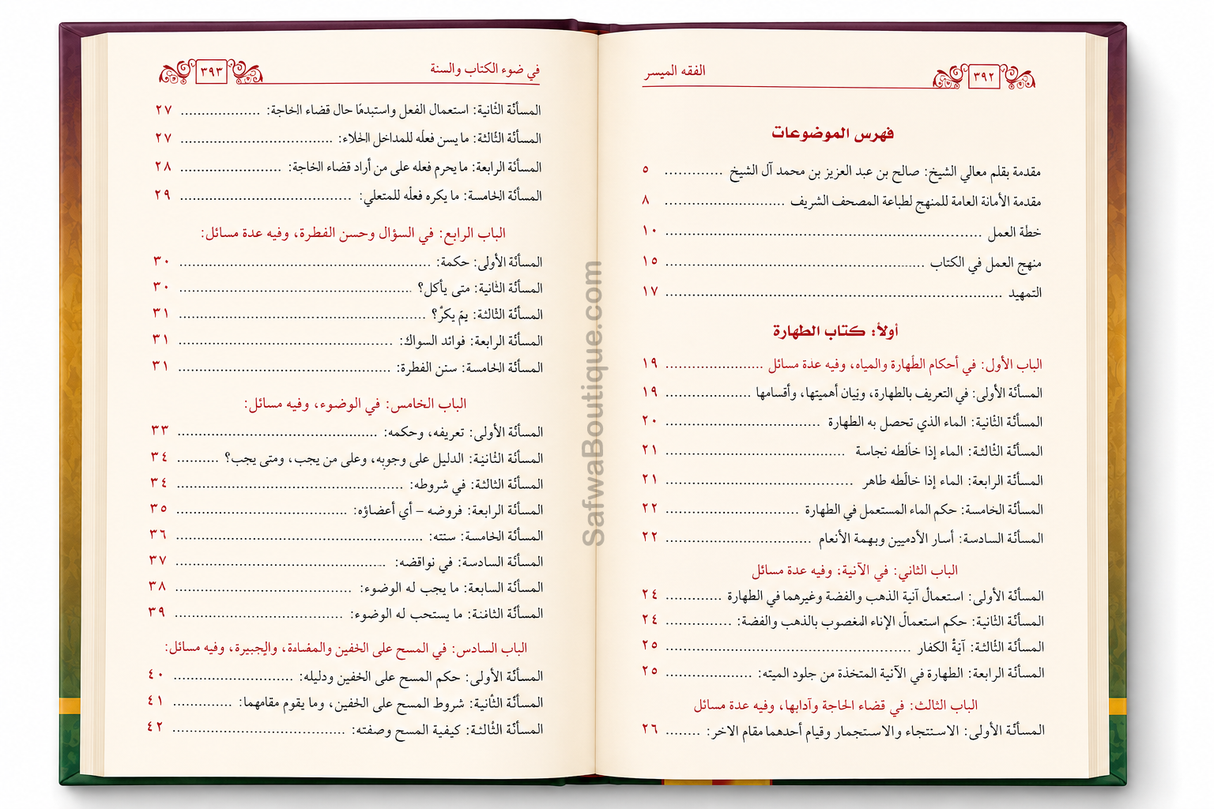 الفقه الميسر
٣٩٢
فهرس الموضوعات
مقدمة بقلم معالي الشيخ: صالح بن عبد العزيز بن محمد آل الشيخ ............. ٥
مقدمة الأمانة العامة للمنهج لطباعة المصحف الشريف ............................ ٨
خطة العمل ............................................................................ ١٠
منهج العمل في الكتاب .............................................................. ١٥
التمهيد ................................................................................ ١٧
أولاً: كتاب الطهارة
الباب الأول: في أحكام الطهارة والمياه، وفيه عدة مسائل ....................... ١٩
المسألة الأولى: في التعريف بالطهارة، وبيان أهميتها، وأقسامها .................... ١٩
المسألة الثانية: الماء الذي تحصل به الطهارة ..................................... ٢٠
المسألة الثالثة: الماء إذا خالطه نجاسة ........................................... ٢١
المسألة الرابعة: الماء إذا خالطه طاهر ............................................. ٢١
المسألة الخامسة: حكم الماء المستعمل في الطهارة ................................ ٢٢
المسألة السادسة: أسار الأدميين وبهمة الأنعام ................................... ٢٢
الباب الثاني: في الآنية، وفيه عدة مسائل
المسألة الأولى: استعمال آنية الذهب والفضة وغيرهما في الطهارة ............. ٢٤
المسألة الثانية: حكم استعمال الإناء المغصوب بالذهب والفضة: ............... ٢٤
المسألة الثالثة: آيَةُ الكفار .......................................................... ٢٥
المسألة الرابعة: الطهارة في الآنية المتخذة من جلود الميته: ..................... ٢٥
الباب الثالث: في قضاء الحاجة وآدابها، وفيه عدة مسائل
المسألة الأولى: الاستنجاء والاستجمار وقيام أحدهما مقام الاخر: ........ ٢٦
في ضوء الكتاب والسنة
٣٩٣
المسألة الثانية: استعمال الفعل واستبدمًا حال قضاء الحاجة: ................... ٢٧
المسألة الثالثة: ما يسن فعله للمداخل الخلاء: .................................... ٢٧
المسألة الرابعة: ما يحرم فعله على من أراد قضاء الحاجة: ........................ ٢٨
المسألة الخامسة: ما يكره فعله للمتعلي: ......................................... ٢٩
الباب الرابع: في السؤال وحسن الفطرة، وفيه عدة مسائل:
المسألة الأولى: حكمة: ............................................................ ٣٠
المسألة الثانية: متى يأكل؟ ........................................................ ٣٠
المسألة الثالثة: يمَ يكرُ؟ ............................................................ ٣١
المسألة الرابعة: فوائد السواك: .................................................... ٣١
المسألة الخامسة: سنن الفطرة: ................................................... ٣١
الباب الخامس: في الوضوء، وفيه مسائل:
المسألة الأولى: تعريفه، وحكمه: ................................................ ٣٣
المسألة الثانية: الدليل على وجوبه، وعلى من يجب، ومتى يجب؟ .......... ٣٤
المسألة الثالثة: في شروطه: ....................................................... ٣٤
المسألة الرابعة: فروضه – أي أعضاؤه: ......................................... ٣٥
المسألة الخامسة: سنته: ........................................................... ٣٦
المسألة السادسة: في نواقضه: .................................................... ٣٧
المسألة السابعة: ما يجب له الوضوء: ............................................ ٣٨
المسألة الثامنة: ما يستحب له الوضوء: ......................................... ٣٩
الباب السادس: في المسح على الخفين والجبيرة، وفيه مسائل:
المسألة الأولى: حكم المسح على الخفين ودليله: ............................. ٤٠
المسألة الثانية: شروط المسح على الخفين، وما يقوم مقامهما: .............. ٤١
المسألة الثالثة: كيفية المسح وصفته: .......................................... ٤٢
SafwaBoutique.com